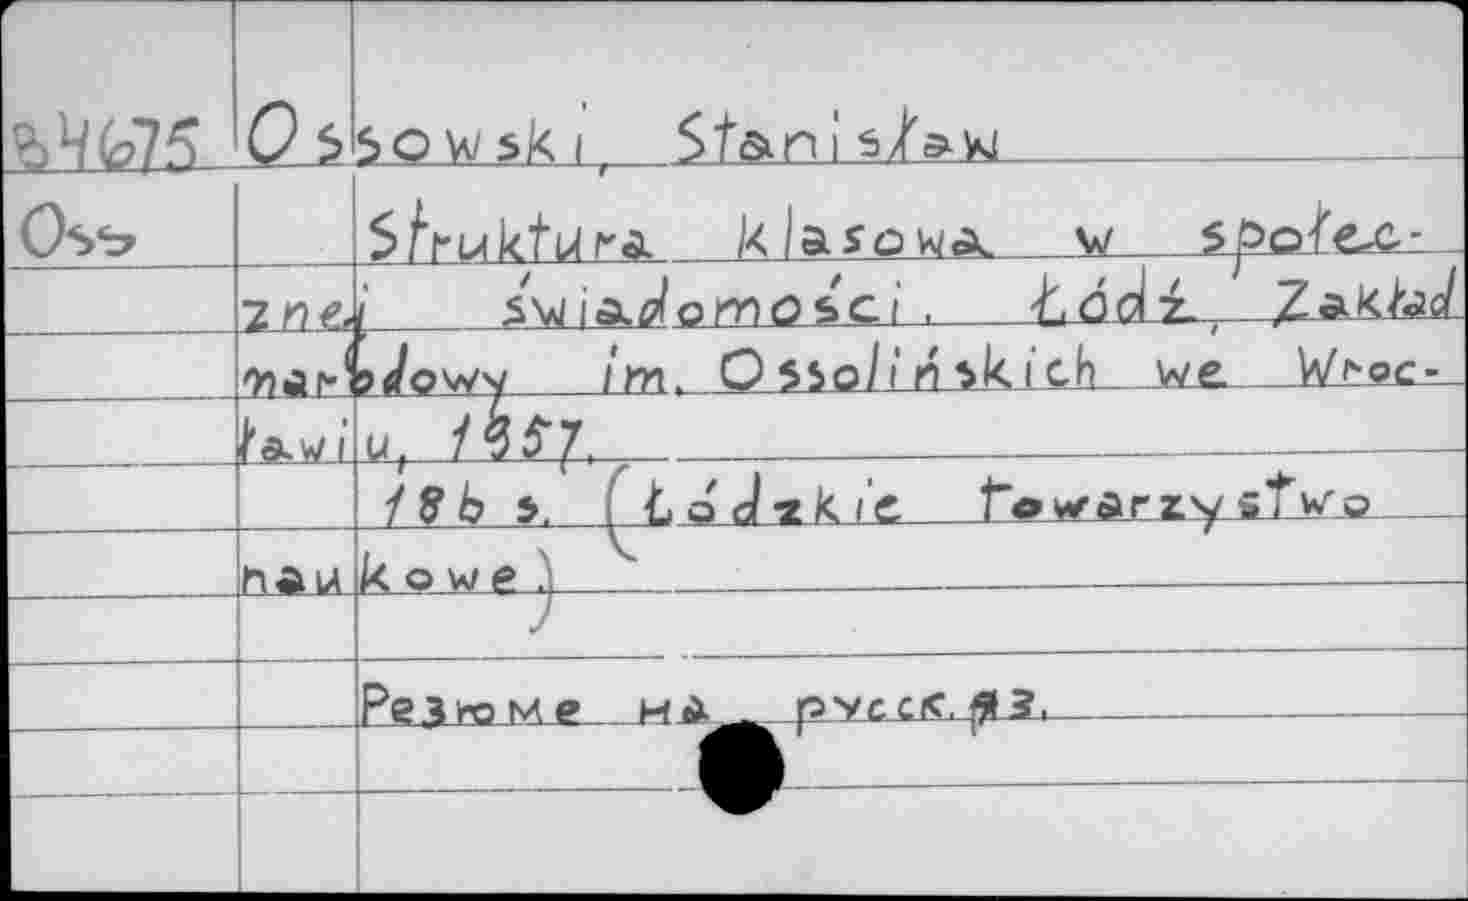 Ossowski, Stanisław
Oss Struktura klasowa w społec-
znej świadomości. Łódź, Zakład
narodowy im. Ossolińskich we Wroc-
ławiu, 1957.
186 s. (Łódzkie towarzystwo
naukowe.)
Резюме на русск. яз.